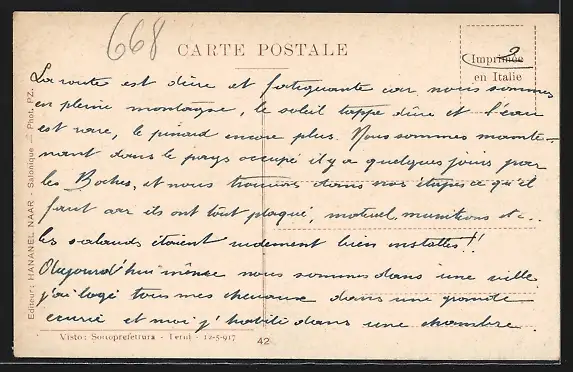 668
CARTE POSTALE
Imprimée
en Italie
2
La route est dûre et fatiguante car nous sommes
en pleine montagne, le soleil tappe dûre et l'eau
est rare, le pinard encore plus. Nous sommes mainte-
nant dans le pays occupé il y a quelques jours par
les Boches, et nous trouvons dans nos étapes ce qu'il
faut car ils ont tout plaqué, matuel, munitions etc..
les salauds étaient rudement bien installés!!
Aujourd'hui même nous sommes dans une ville
j'ai logé tous mes chevaux dans une grande
écurie et moi j'habite dans une chambre.
Visto: Sottoprefettura - Terni - 12-5-917
42
Editeur: HANANEL NAAR - Salonique — Phot. PZ.